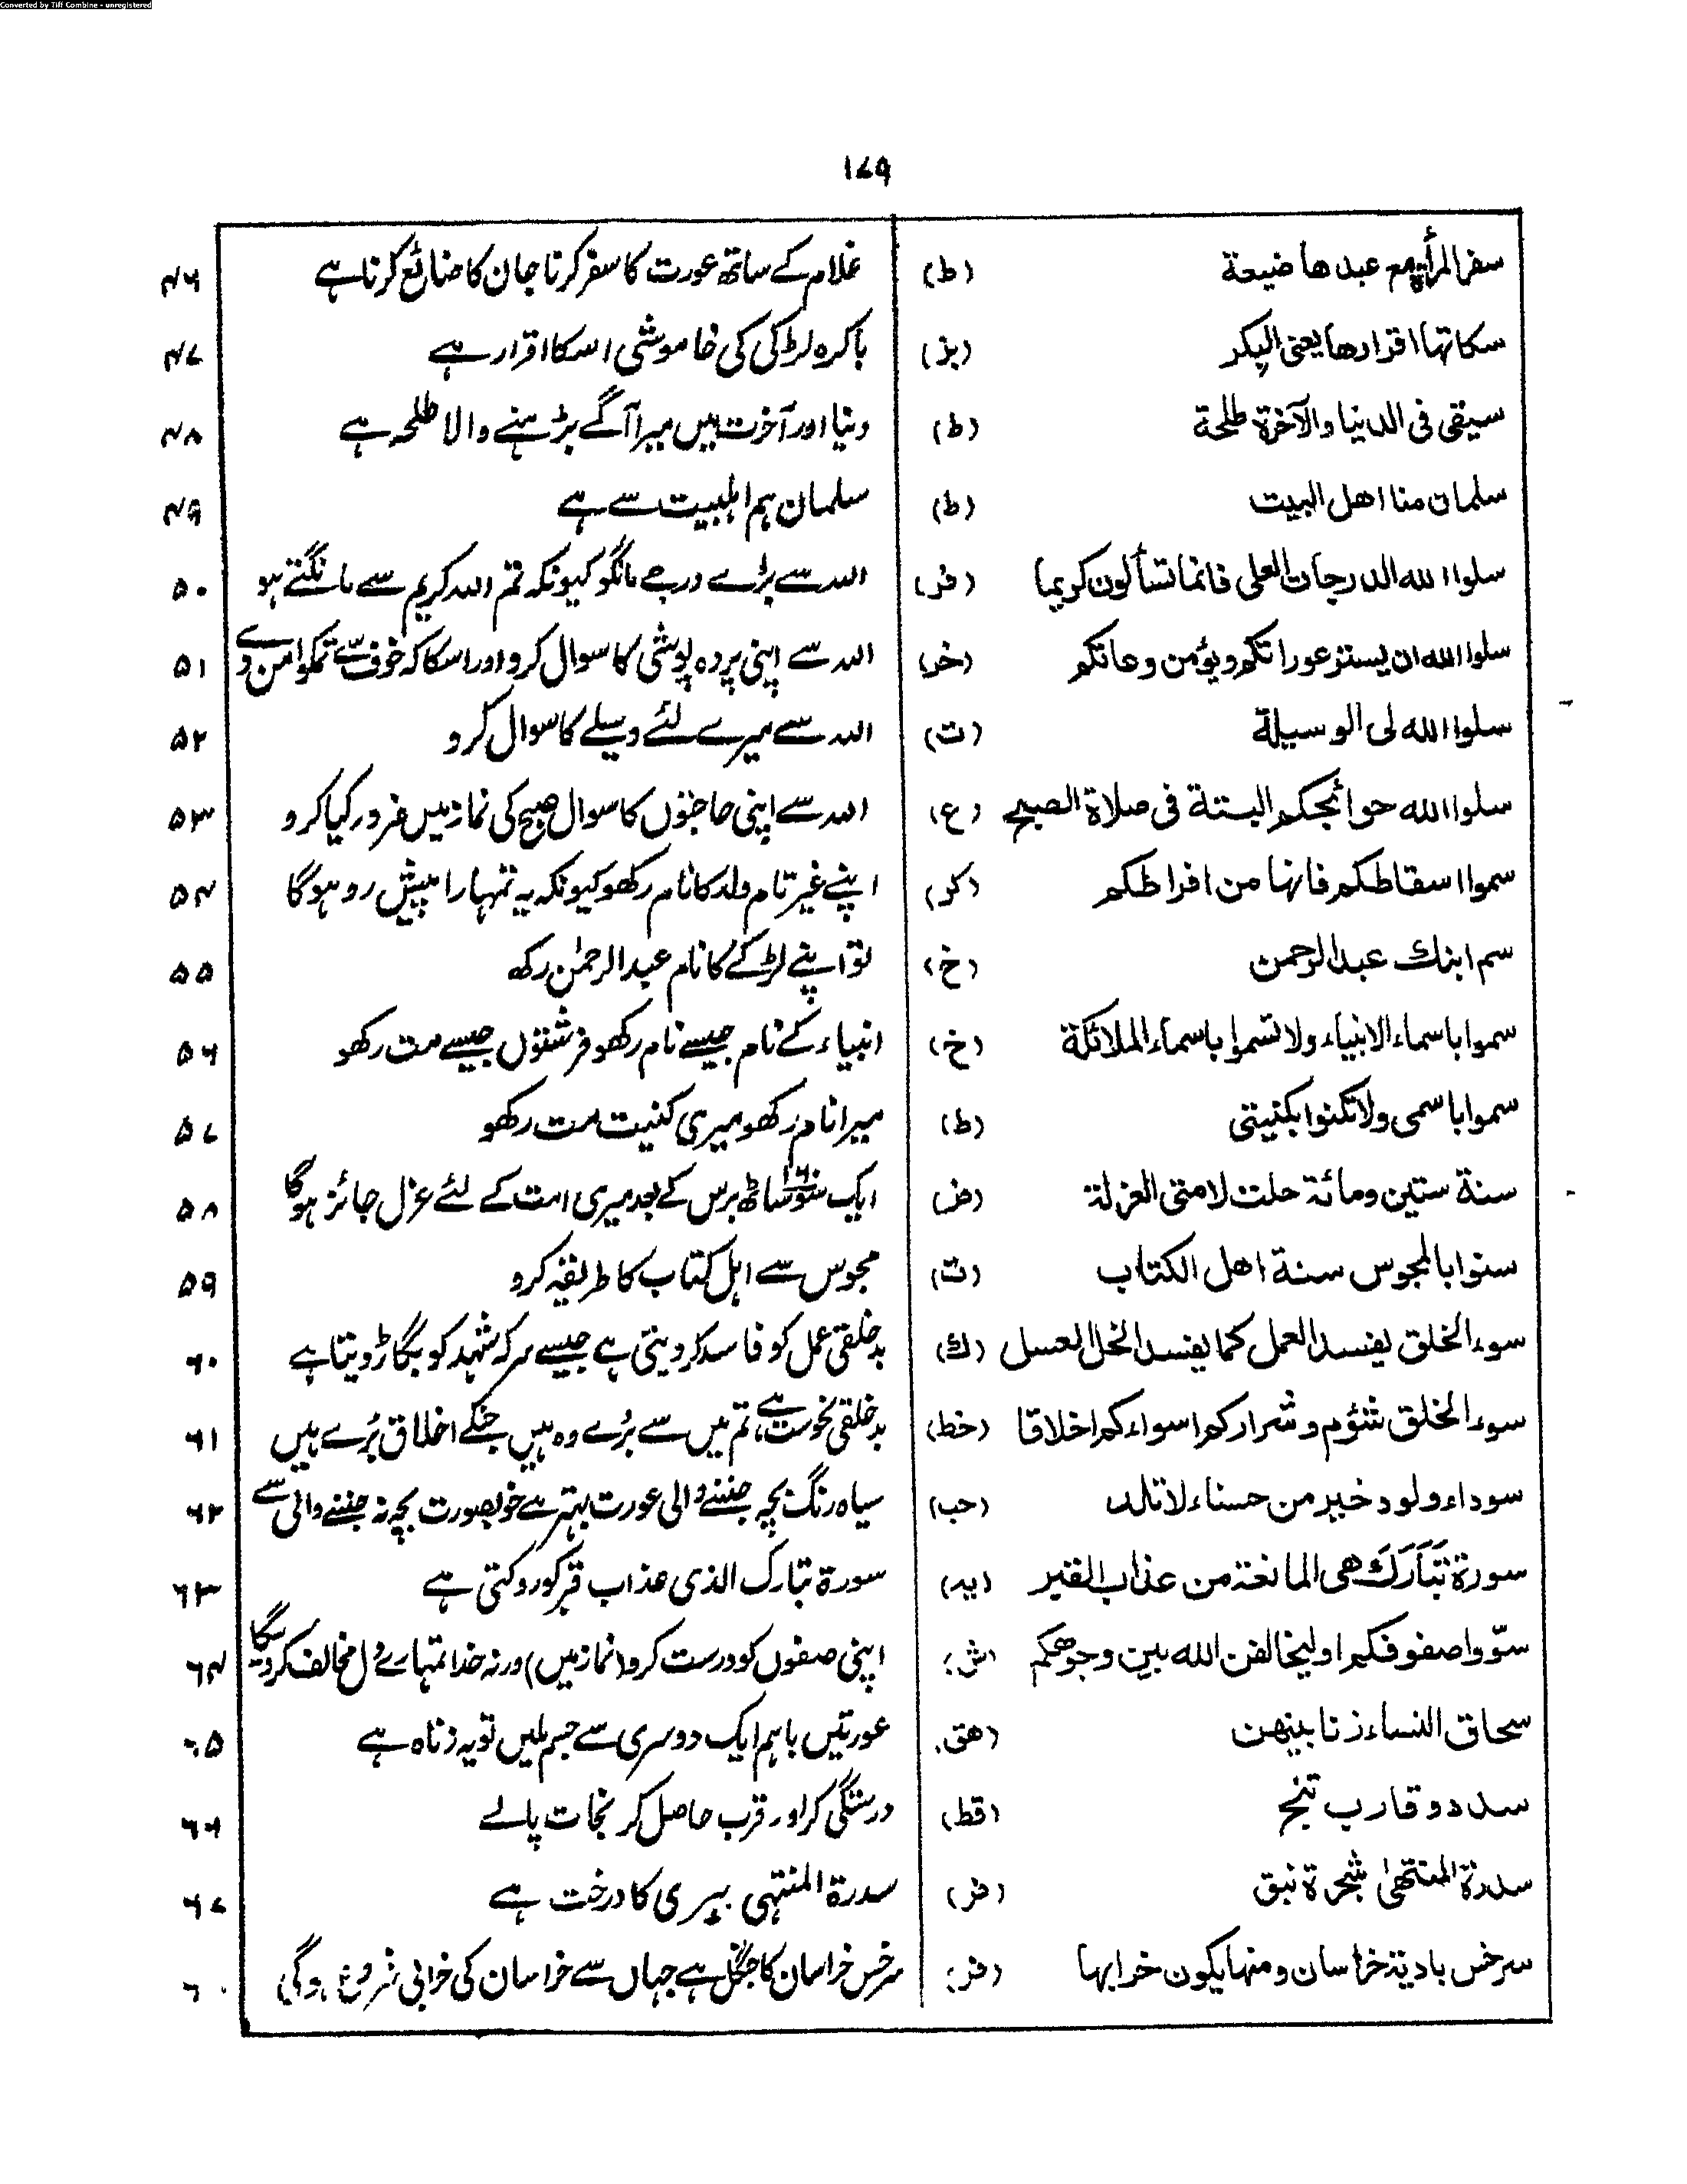 Converted by Tiff Combine - unregistered
۱۷۹
سفر المرأة مع عبدها ضيعة (ط) غلام کے ساتھ عورت کا سفر کرنا جان کا ضائع کرنا ہے ۴۶
سكاتها اقرارها يعنى البكر (بز) باکرہ لڑکی کی خاموشی اسکا اقرار ہے ۴۷
سيقى فى الدنيا والآخرة طلحة (ط) دنیا اور آخرت میں میرا آگے بڑھنے والا طلحہ ہے ۴۸
سلمان منا اهل البيت (ط) سلمان ہم اہلبیت سے ہے ۴۹
سلوا الله الدرجات العلى فانما تسألون كريما (فر) اللہ سے بڑے درجے مانگو کیونکہ تم اللہ کریم سے مانگتے ہو ۵۰
سلوا الله ان يستر عوراتكم ويؤمن روعاتكم (خر) اللہ سے اپنی پردہ پوشی کا سوال کرو اور اسکا کہ خوف سے تمکو امن دے ۵۱
سلوا الله لى الوسيلة (ت) اللہ سے میرے لئے وسیلے کا سوال کرو ۵۲
سلوا الله حوائجكم البتة فى صلاة الصبح (ع) اللہ سے اپنی حاجتوں کا سوال صبح کی نماز میں ضرور کیا کرو ۵۳
سموا اسقاطكم فانها من افراطكم (كر) اپنے غیر تام ولد کا نام رکھو کیونکہ یہ تمہارا پیش رو ہوگا ۵۴
سم ابنك عبد الرحمن (خ) تو اپنے لڑکے کا نام عبدالرحمٰن رکھ ۵۵
سموا باسماء الانبياء ولا تسموا باسماء الملائكة (خ) انبیاء کے نام جیسے نام رکھو فرشتوں جیسے مت رکھو ۵۶
سموا باسمى ولا تكنوا بكنيتى (ط) میرا نام رکھو میری کنیت مت رکھو ۵۷
سنة ستين ومائة حلت لامتى العزلة (فر) ایک سو ساٹھ برس کے بعد میری امت کے لئے عزل جائز ہوگا ۵۸
سنوا بالمجوس سنة اهل الكتاب (ت) مجوس سے اہل کتاب کا طریقہ کرو ۵۹
سوء الخلق يفسد العمل كما يفسد الخل العسل (ك) بد خلقی عمل کو فاسد کر دیتی ہے جیسے سرکہ شہد کو بگاڑ دیتا ہے ۶۰
سوء الخلق شؤم وشراركم اسواءكم اخلاقا (خط) بد خلقی نحوست ہے، تم میں سے بُرے وہ ہیں جنکے اخلاق بُرے ہیں ۶۱
سوداء ولود خير من حسناء لا تلد (حب) سیاہ رنگ بچہ جننے والی عورت بہتر ہے خوبصورت بچہ نہ جننے والی سے ۶۲
سورة تَبَارَكَ هى المانعة من عذاب القبر (يد) سورۃ تبارک الذی عذاب قبر کو روکتی ہے ۶۳
سوّوا صفوفكم او ليخالفن الله بين وجوهكم (ش) اپنی صفوں کو درست کرو (نماز میں) ورنہ خدا تمہارے دل مخالف کردیگا ۶۴
سحاق النساء زنا بينهن (هق) عورتیں باہم ایک دوسری سے جسم ملیں تو یہ زناہ ہے ۶۵
سدد و قارب تنج (قط) درستگی کر اور قرب حاصل کر نجات پالے ۶۶
سدرة المنتهىٰ شجرة نبق (فر) سدرۃ المنتہی بیری کا درخت ہے ۶۷
سرخس بادية خراسان ومنها يكون خرابها (فر) سرخس خراسان کا جنگل ہے جہاں سے خراسان کی خرابی شروع ہوگی